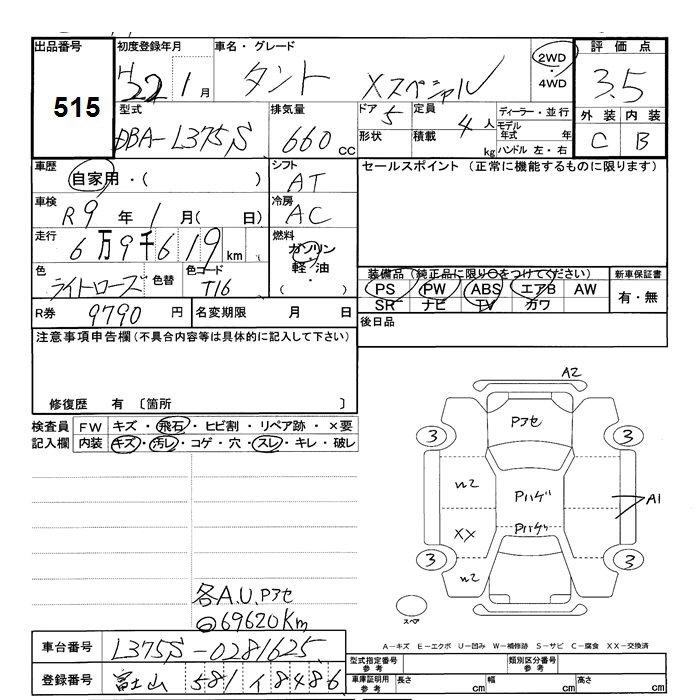 出品番号 初度登録年月 車名・グレード 2WD・4WD 評価点
515 H22 1月 タント Xスペシャル 3.5
型式 排気量 ドア 5 定員 4人 ディーラー・並行 外装 内装
DBA-L375S 660 CC 形状 積載 kg モデル年式 年 C B
ハンドル 左・右
車歴 シフト セールスポイント (正常に機能するものに限ります)
自家用・( ) AT
車検 冷房
R9年 1月( 日) AC
走行 燃料
6万9千619km ガソリン・軽油
色 色替 色コード ( ・ )
ライトローズ T16
装備品(純正品に限り○をつけてください) 新車保証書
PS PW ABS エアB AW 有・無
SR ナビ TV カワ
R券 9790円 名変期限 月 日 後日品
注意事項申告欄(不具合内容等は具体的に記入して下さい)
修復歴 有 〔箇所 〕
検査員 FW キズ・飛石・ヒビ割・リペア跡・×要
記入欄 内装 キズ・汚レ・コゲ・穴・スレ・キレ・破レ
A2
Pアセ
3 3
W2 Pハゲ A1
XX Pハゲ
3 3
W2
スペア
各A.U.Pアセ
69620Km
A-キズ E-エクボ U-凹み W-補修跡 S-サビ C-腐食 XX-交換済
車台番号 L375S-0281625
型式指定番号 参考 類別区分番号 参考
登録番号 富士山 581 イ8486
車庫証明用 参考 長さ cm 幅 cm 高さ cm